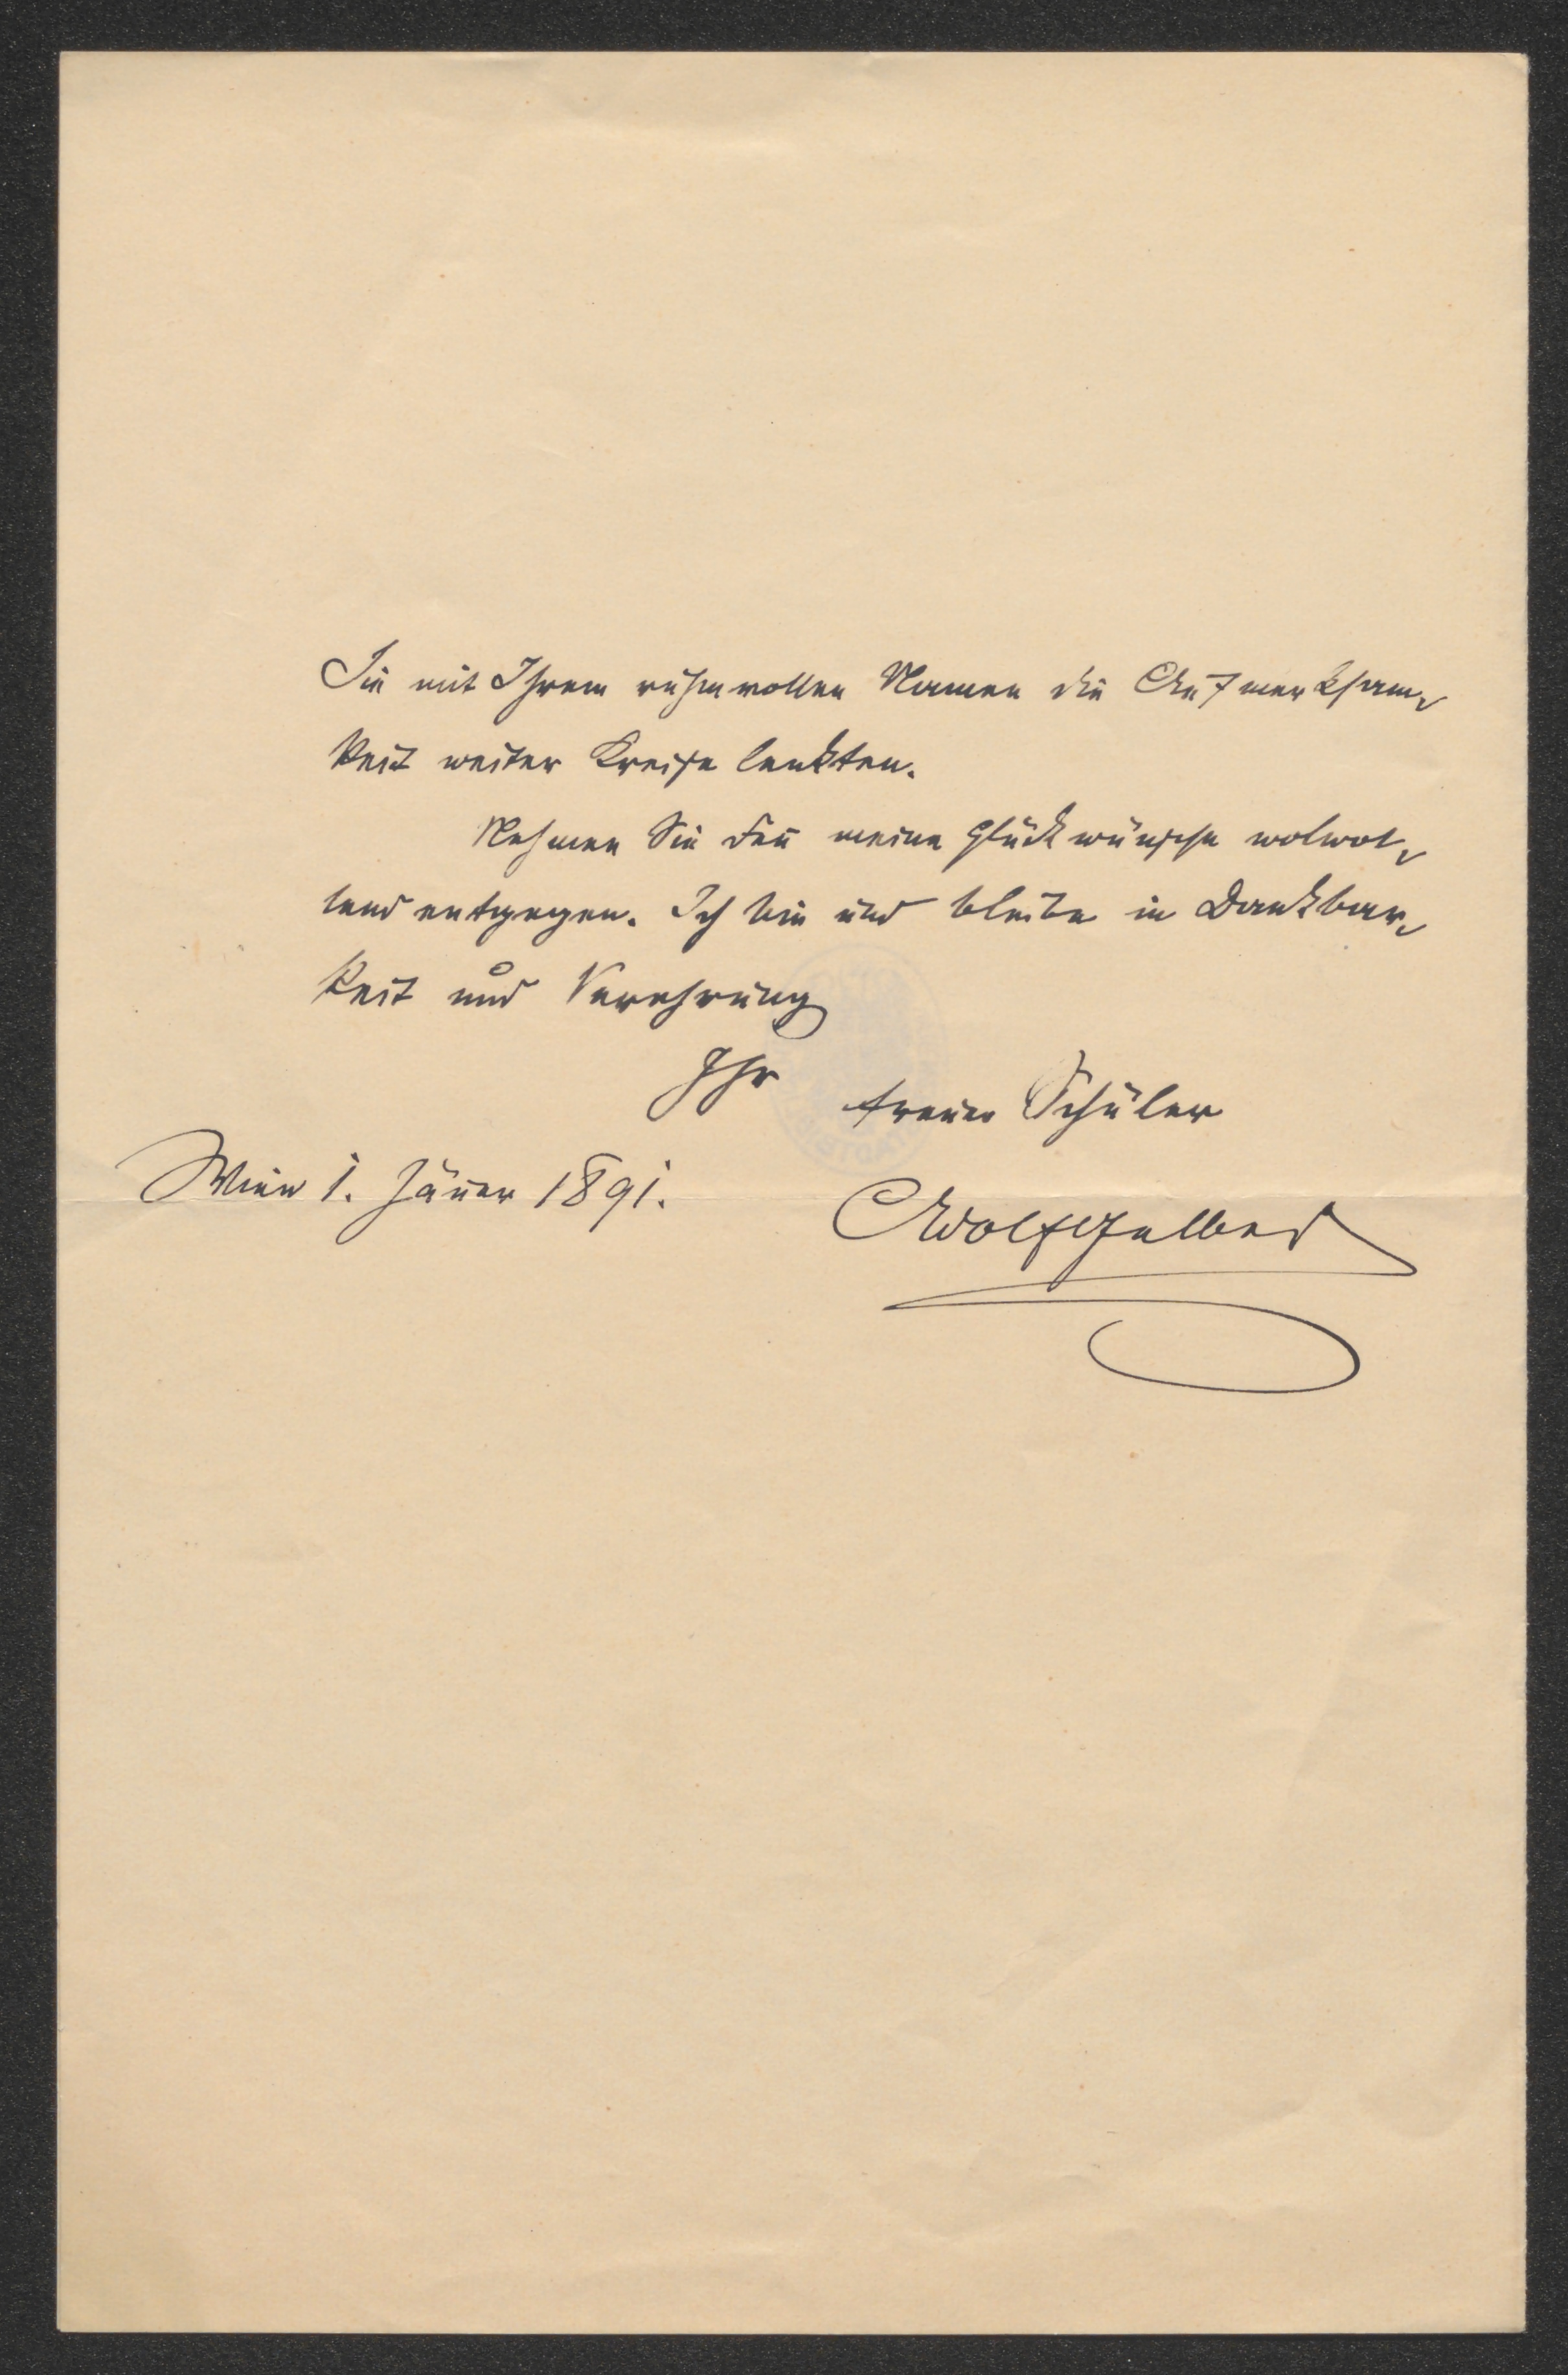 Sie mit Ihrem ruhmvollen Namen die Aufmerksam-
keit weiter Kreise lenkten.
Nehmen Sie den̄ meine Glückwünsche wolwol-
lend entgegen. Ich bin und bleibe in Dankbar-
keit und Verehrung
Ihr treuer Schüler
Wien 1. Jänner 1891.
Adolf Gelber